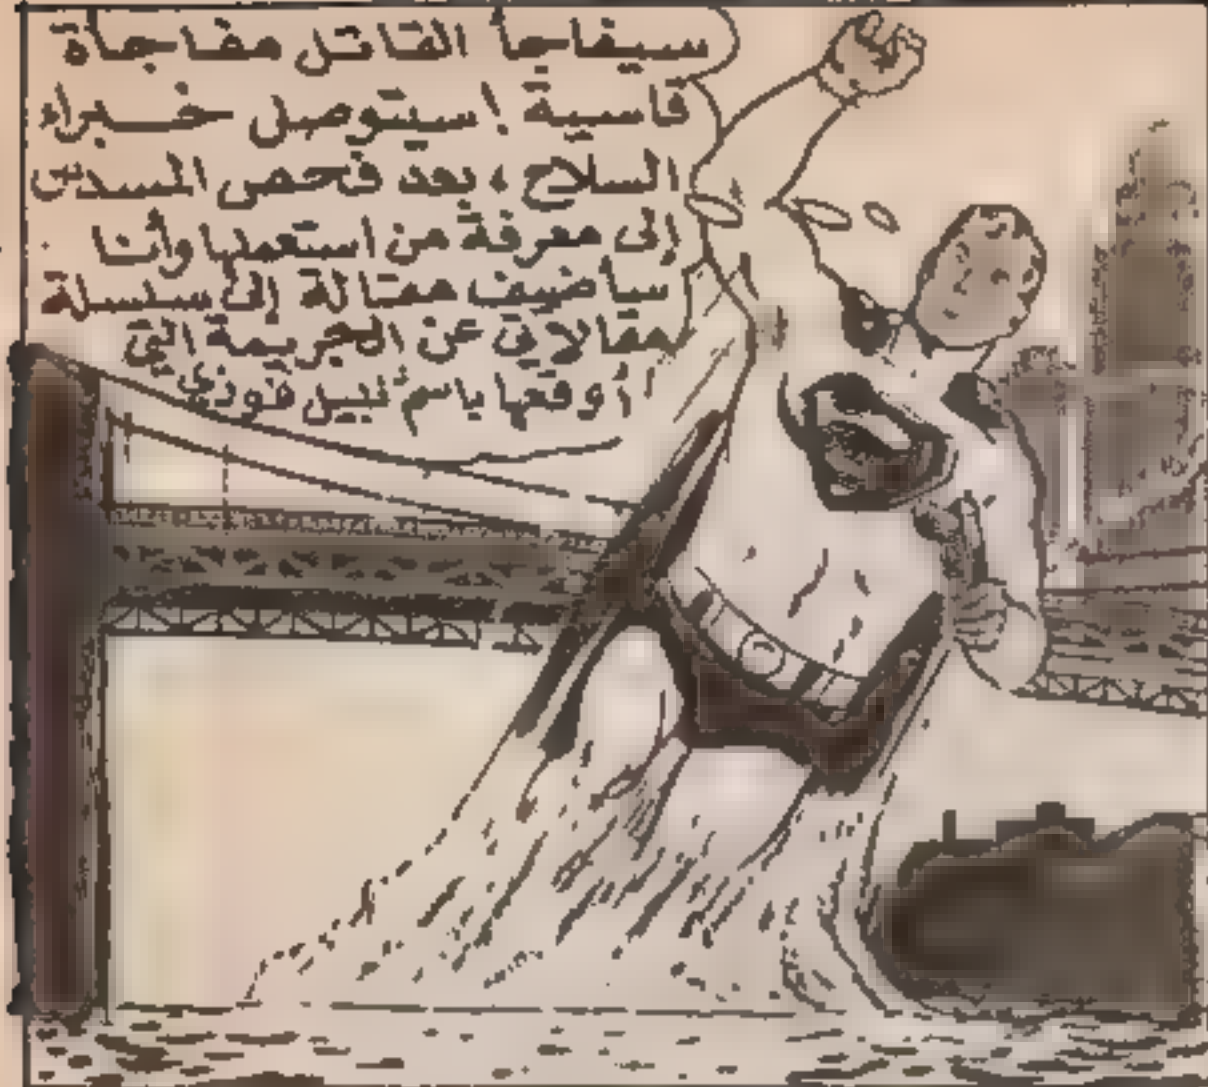 سيفاجأ القاتل مفاجأة
قاسية ! سيتوصل خبراء
السلاح ، بعد فحص المسدس
إلى معرفة من استعملها وأنا
سأضيف مقالة إلى سلسلة
مقالاتي عن الجريمة التي
أوقعها باسم نبيل فوزي